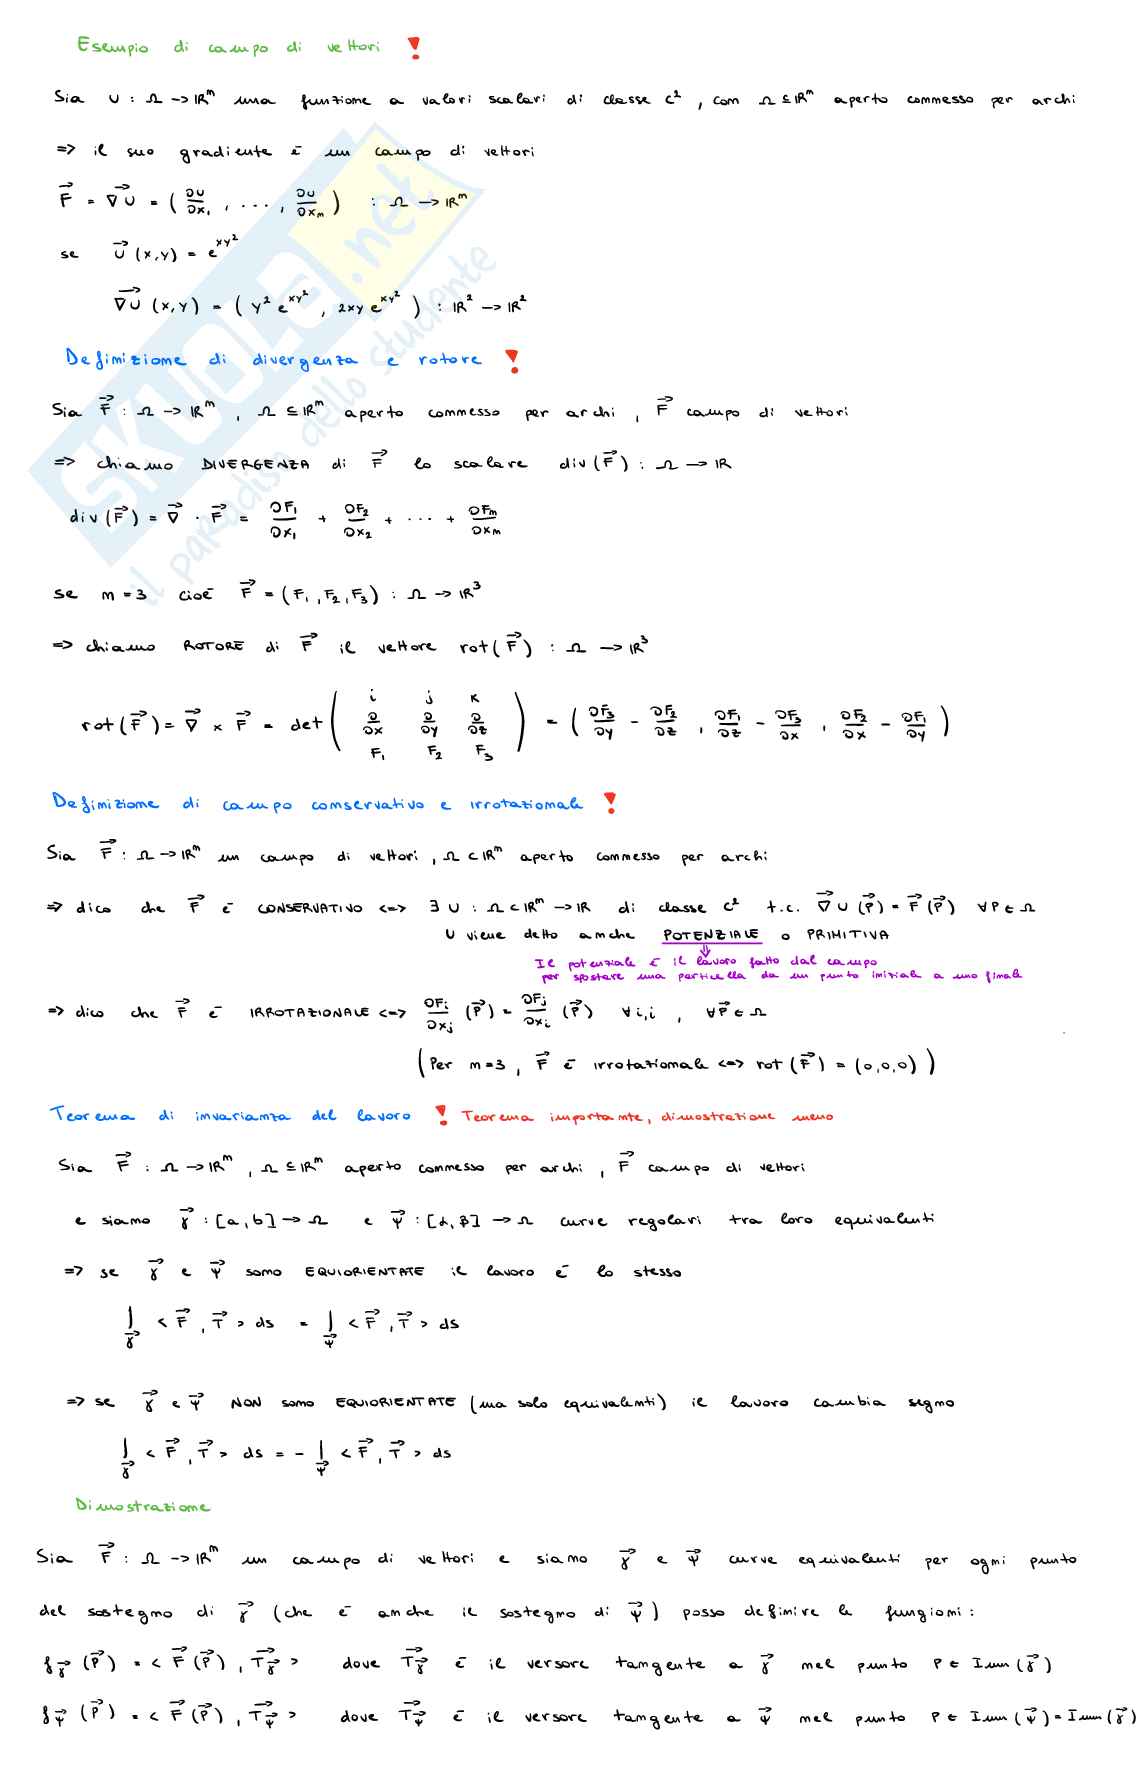 Esempio di campo di vettori !
Sia U : Ω -> IR^n una funzione a valori scalari di classe C², con Ω ⊆ IR^n aperto connesso per archi
=> il suo gradiente è un campo di vettori
F⃗ = ∇⃗U = ( ∂U/∂x₁ , ... , ∂U/∂xₙ ) : Ω -> IR^n
se U⃗ (x,y) = e^(xy²)
∇⃗U (x,y) = ( y² e^(xy²) , 2xy e^(xy²) ) : IR² -> IR²
Definizione di divergenza e rotore !
Sia F⃗ : Ω -> IR^n , Ω ⊆ IR^n aperto connesso per archi , F⃗ campo di vettori
=> chiamo DIVERGENZA di F⃗ lo scalare div(F⃗) : Ω -> IR
div(F⃗) = ∇⃗ · F⃗ = ∂F₁/∂x₁ + ∂F₂/∂x₂ + ... + ∂Fₙ/∂xₙ
se n = 3 cioè F⃗ = (F₁, F₂, F₃) : Ω -> IR³
=> chiamo ROTORE di F⃗ il vettore rot(F⃗) : Ω -> IR³
rot(F⃗) = ∇⃗ × F⃗ = det ( i j k ; ∂/∂x ∂/∂y ∂/∂z ; F₁ F₂ F₃ ) = ( ∂F₃/∂y - ∂F₂/∂z , ∂F₁/∂z - ∂F₃/∂x , ∂F₂/∂x - ∂F₁/∂y )
Definizione di campo conservativo e irrotazionale !
Sia F⃗ : Ω -> IR^n un campo di vettori , Ω ⊂ IR^n aperto connesso per archi
=> dico che F⃗ è CONSERVATIVO <=> ∃ U : Ω ⊂ IR^n -> IR di classe C² t.c. ∇⃗U (P⃗) = F⃗ (P⃗) ∀P ∈ Ω
U viene detto anche POTENZIALE o PRIMITIVA
Il potenziale è il lavoro fatto dal campo
per spostare una particella da un punto iniziale a uno finale
=> dico che F⃗ è IRROTAZIONALE <=> ∂Fᵢ/∂xⱼ (P⃗) = ∂Fⱼ/∂xᵢ (P⃗) ∀ i,i , ∀P⃗ ∈ Ω
( Per n=3 , F⃗ è irrotazionale <=> rot (F⃗) = (0,0,0) )
Teorema di invarianza del lavoro ! Teorema importante, dimostrazione meno
Sia F⃗ : Ω -> IR^n , Ω ⊆ IR^n aperto connesso per archi , F⃗ campo di vettori
e siano γ⃗ : [a,b] -> Ω e ψ⃗ : [α,β] -> Ω curve regolari tra loro equivalenti
=> se γ⃗ e ψ⃗ sono EQUIORIENTATE il lavoro è lo stesso
∫_γ⃗ < F⃗ , T⃗ > ds = ∫_ψ⃗ < F⃗ , T⃗ > ds
=> se γ⃗ e ψ⃗ NON sono EQUIORIENTATE (ma solo equivalenti) il lavoro cambia segno
∫_γ⃗ < F⃗ , T⃗ > ds = - ∫_ψ⃗ < F⃗ , T⃗ > ds
Dimostrazione
Sia F⃗ : Ω -> IR^n un campo di vettori e siano γ⃗ e ψ⃗ curve equivalenti per ogni punto
del sostegno di γ⃗ (che è anche il sostegno di ψ⃗) posso definire le fungioni :
f_γ⃗ (P⃗) = < F⃗ (P⃗) , T⃗_γ⃗ > dove T⃗_γ⃗ è il versore tangente a γ⃗ nel punto P ∈ Imm (γ⃗)
f_ψ⃗ (P⃗) = < F⃗ (P⃗) , T⃗_ψ⃗ > dove T⃗_ψ⃗ è il versore tangente a ψ⃗ nel punto P ∈ Imm (ψ⃗) = Imm (γ⃗)
SKUOLA.net
il paradiso dello studente